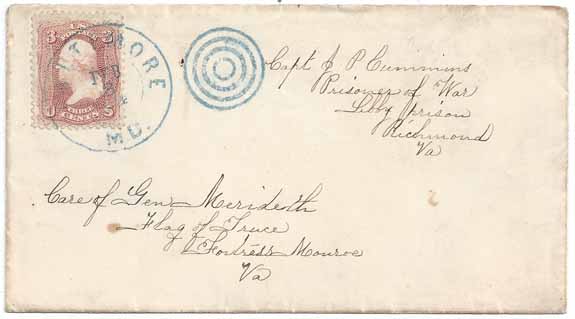 3 U.S. 3
BALTIMORE
FEB
MD.
THREE
U CENTS S
Capt J P Cummins
Prisoner of War
Libby prison
Richmond
Va
Care of Gen Merideth
Flag of Truce
Fortress Monroe
Va